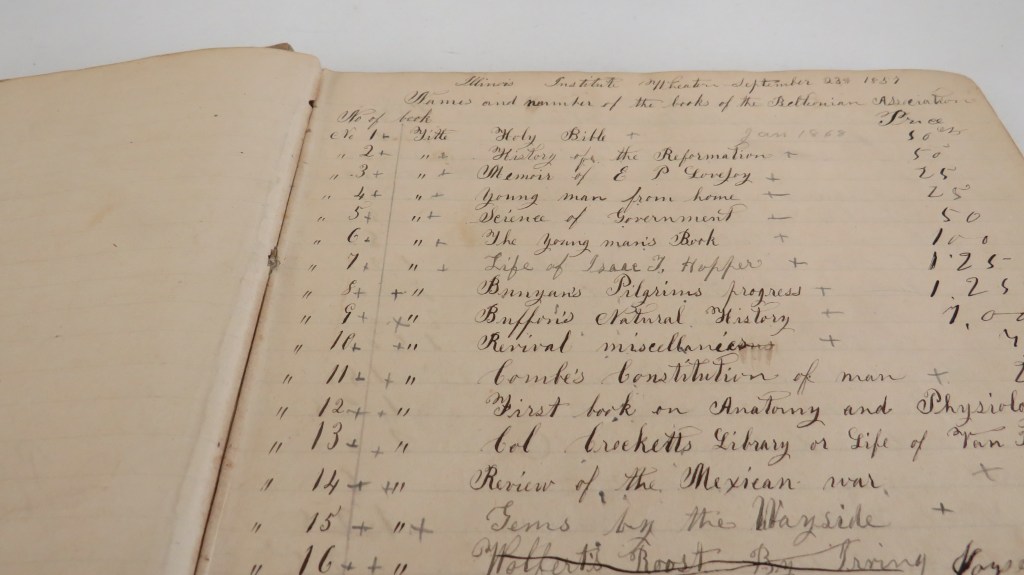 Illinois Institute Wheaton September 23d 1857
Names and number of the book of the Beltionian Association
No of book Price
No 1+ Title Holy Bible + Jan 1868 50 cts
" 2+ "+ History of the Reformation + 50
" 3+ "+ Memoir of E P Lovejoy + 25
" 4+ "+ Young man from home — 25
" 5+ "+ Science of Government — 50
" 6+ "+ The Young man's Book + 100
" 7+ "+ Life of Isaac T. Hopper + 1.25
" 8+ +" Bunyan's Pilgrims progress + 1.25
" 9+ +" Buffon's Natural History + 1,00
" 10+ +" Revival miscellanies +
" 11+ +" Combe's Constitution of man +
" 12+ +" First book on Anatomy and Physiolo
" 13+ +" Col Crocketts Library or Life of Van
" 14+ +" Review of the Mexican war. +
" 15+ "+ Gems by the Wayside +
" 16+ Wolfert's Roost By Irving